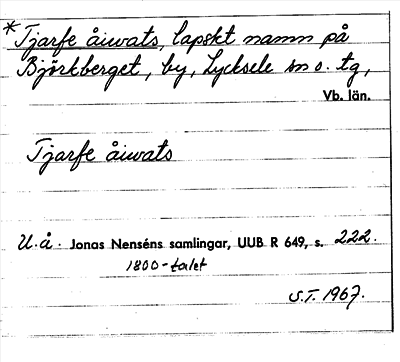 *Tjarfe åiwats, lapskt namn på
Björkberget, by, Lycksele sn o. tg,
Vb. län.
Tjarfe åiwats
U.å. Jonas Nenséns samlingar, UUB R 649, s. 222.
1800-talet
S.T. 1967.